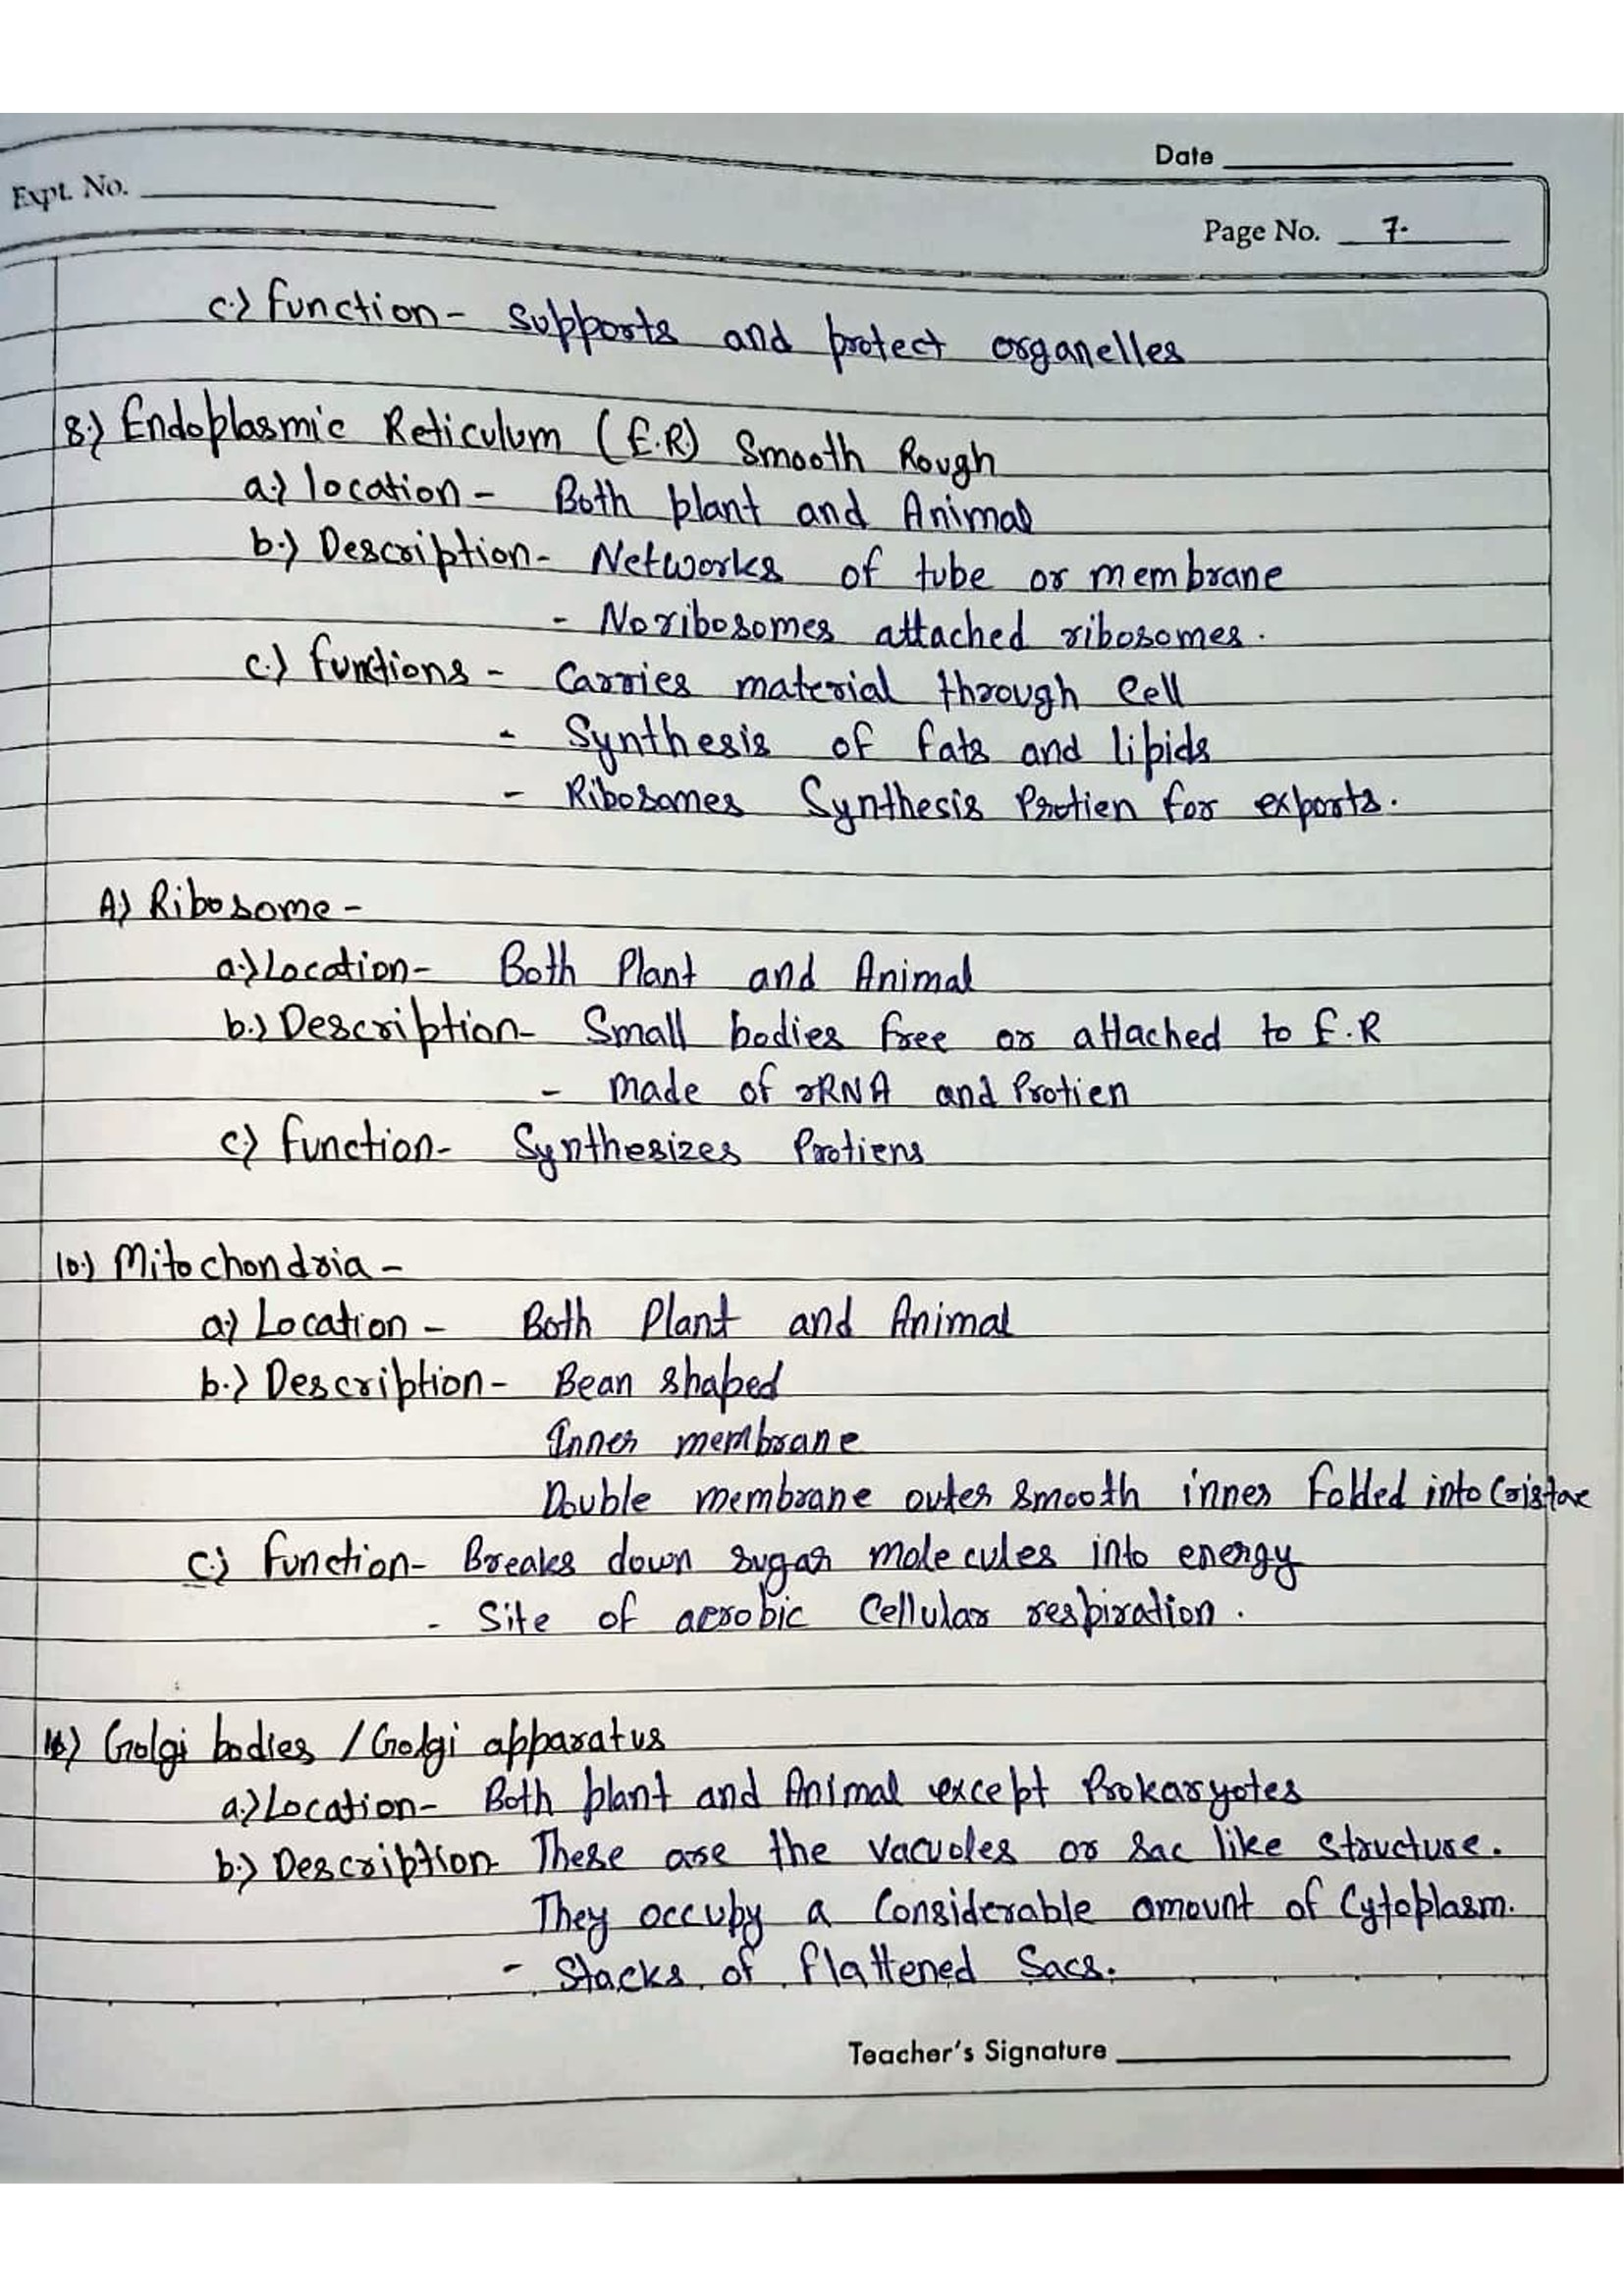 Date
Expt. No.
Page No. 7.
c.) Function - Supports and protect organelles
8.) Endoplasmic Reticulum (E.R) Smooth Rough
a.) location - Both plant and Animal
b.) Description - Networks of tube or membrane
- No ribosomes attached ribosomes.
c.) functions - Carries material through Cell
- Synthesis of fats and lipids
- Ribosomes Synthesis Protien for exports.
A) Ribosome -
a.) Location - Both Plant and Animal
b.) Description - Small bodies free or attached to E.R
- made of rRNA and Protien
c) function - Synthesizes Protiens
10.) Mitochondria -
a.) Location - Both Plant and Animal
b.) Description - Bean shaped
Inner membrane
Double membrane outer smooth inner folded into Cristae
c.) function - Breaks down sugar molecules into energy
- Site of aerobic Cellular respiration.
Golgi bodies / Golgi apparatus
a.) Location - Both plant and Animal except Prokaryotes
b.) Description - These are the vacuoles or sac like structure.
They occupy a Considerable amount of Cytoplasm.
- Stacks of flattened Sacs.
Teacher's Signature